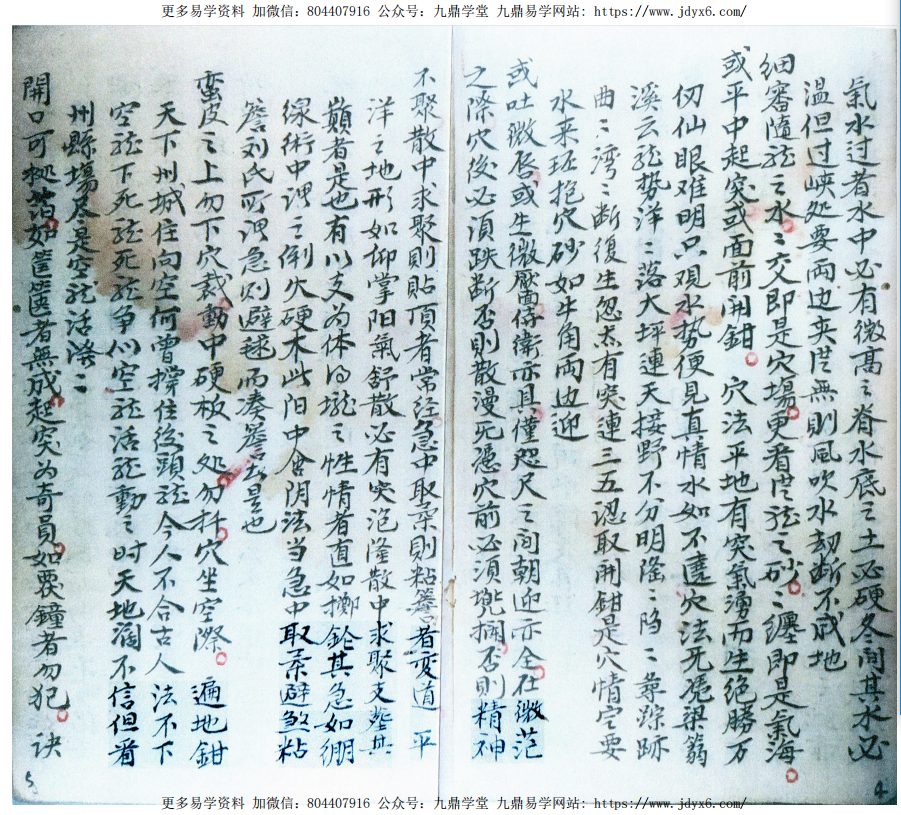 更多易学资料 加微信：804407916 公众号：九鼎学堂 九鼎易学网站：https://www.jdyx6.com/
氣水过者水中必有微高之脊水底之土必硬冬间其水必
温但过峡处要两边夹从無則风吹水刼断不成地
细審隨龍之水之交即是穴場更看从龍之砂之纏即是氣海
或平中起突或面前開鉗 穴法平地有突氣湧而生绝勝万
仞仙眼难明只观水势便見真情水如不違穴法无凭梁箬
溪云龍势洋之落大坪連天接野不分明隆之陷之尋踪跡
曲之湾之断復生忽然有突連三五認取開鉗是穴情它要
水来环抱穴砂如牛角两边迎
或吐微唇或生微靨侍衛亦具僅咫尺之间朝迎亦全在微茫
之際穴後必須跌断否則散漫死憑穴前必須兜拦否則精神
不聚散中求聚則貼頂者常经急中取率則粘簷者变道 平
洋之地形如仰掌阳氣舒散必有突泡隆散中求聚支葬其
巔者是也有以支为体得壠之性情者直如擲鎗其急如绷
線術中谓之倒火硬木此阳中含阴法当急中取柔避煞粘
簷刘氏所谓急则避毬而凑簷者是也
蛮皮之上勿下穴裁動中硬板之处勿杆穴坐空際 遍地鉗
天下州城住向空何曾撑住後頭龍今人不合古人法不下
空龍下死龍死龍争似空龍活龍動之时天地濶不信但看
州縣場尽是空龍活潑之
開口可扦茔如筐篋者無成起突为奇员如覆鐘者勿犯 诀
5
4
更多易学资料 加微信：804407916 公众号：九鼎学堂 九鼎易学网站：https://www.jdyx6.com/